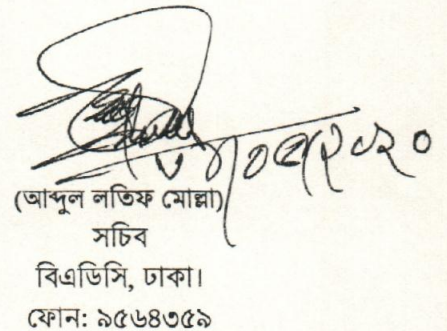 (আব্দুল লতিফ মোল্লা)
সচিব
বিএডিসি, ঢাকা।
ফোন: ৯৫৬৪৩৫৯